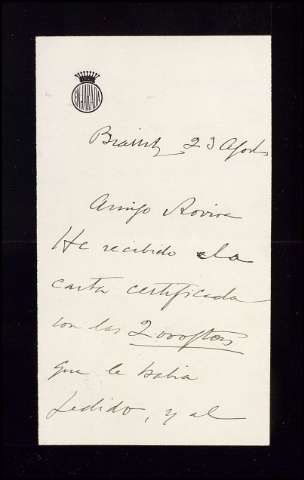 Biarritz 23 Agosto
Amigo Rovira
He recibido la
carta certificada
con las 2000 ptas
que le habia
pedido, y al